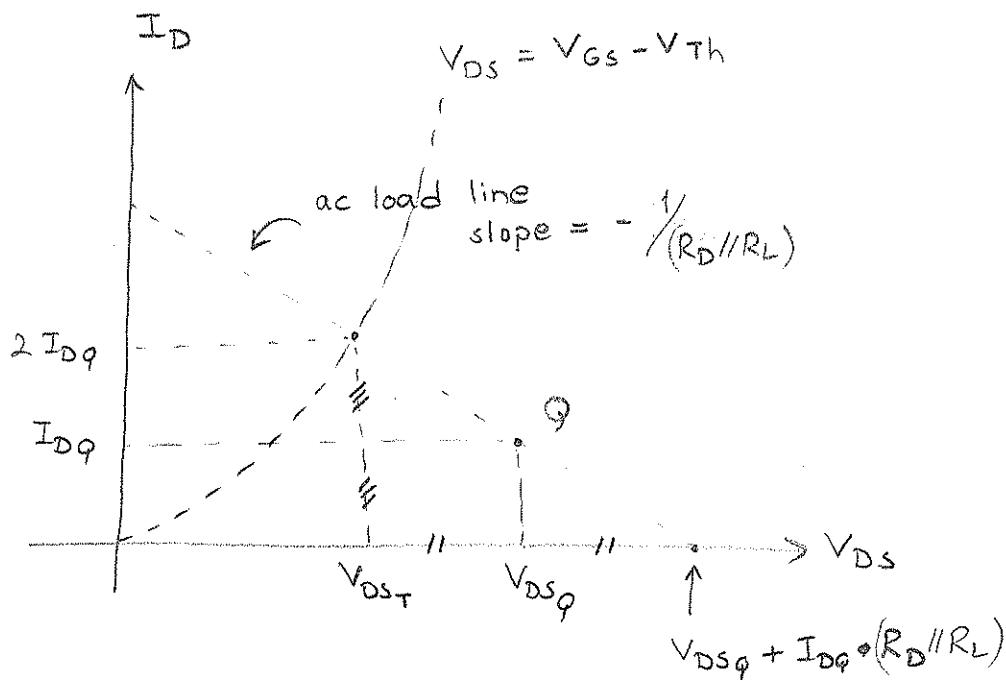 I_D
V_DS = V_GS - V_Th
ac load line
slope = - 1/(R_D//R_L)
2 I_DQ
I_DQ
Q
V_DS_T
V_DS_Q
V_DS
V_DS_Q + I_DQ • (R_D//R_L)